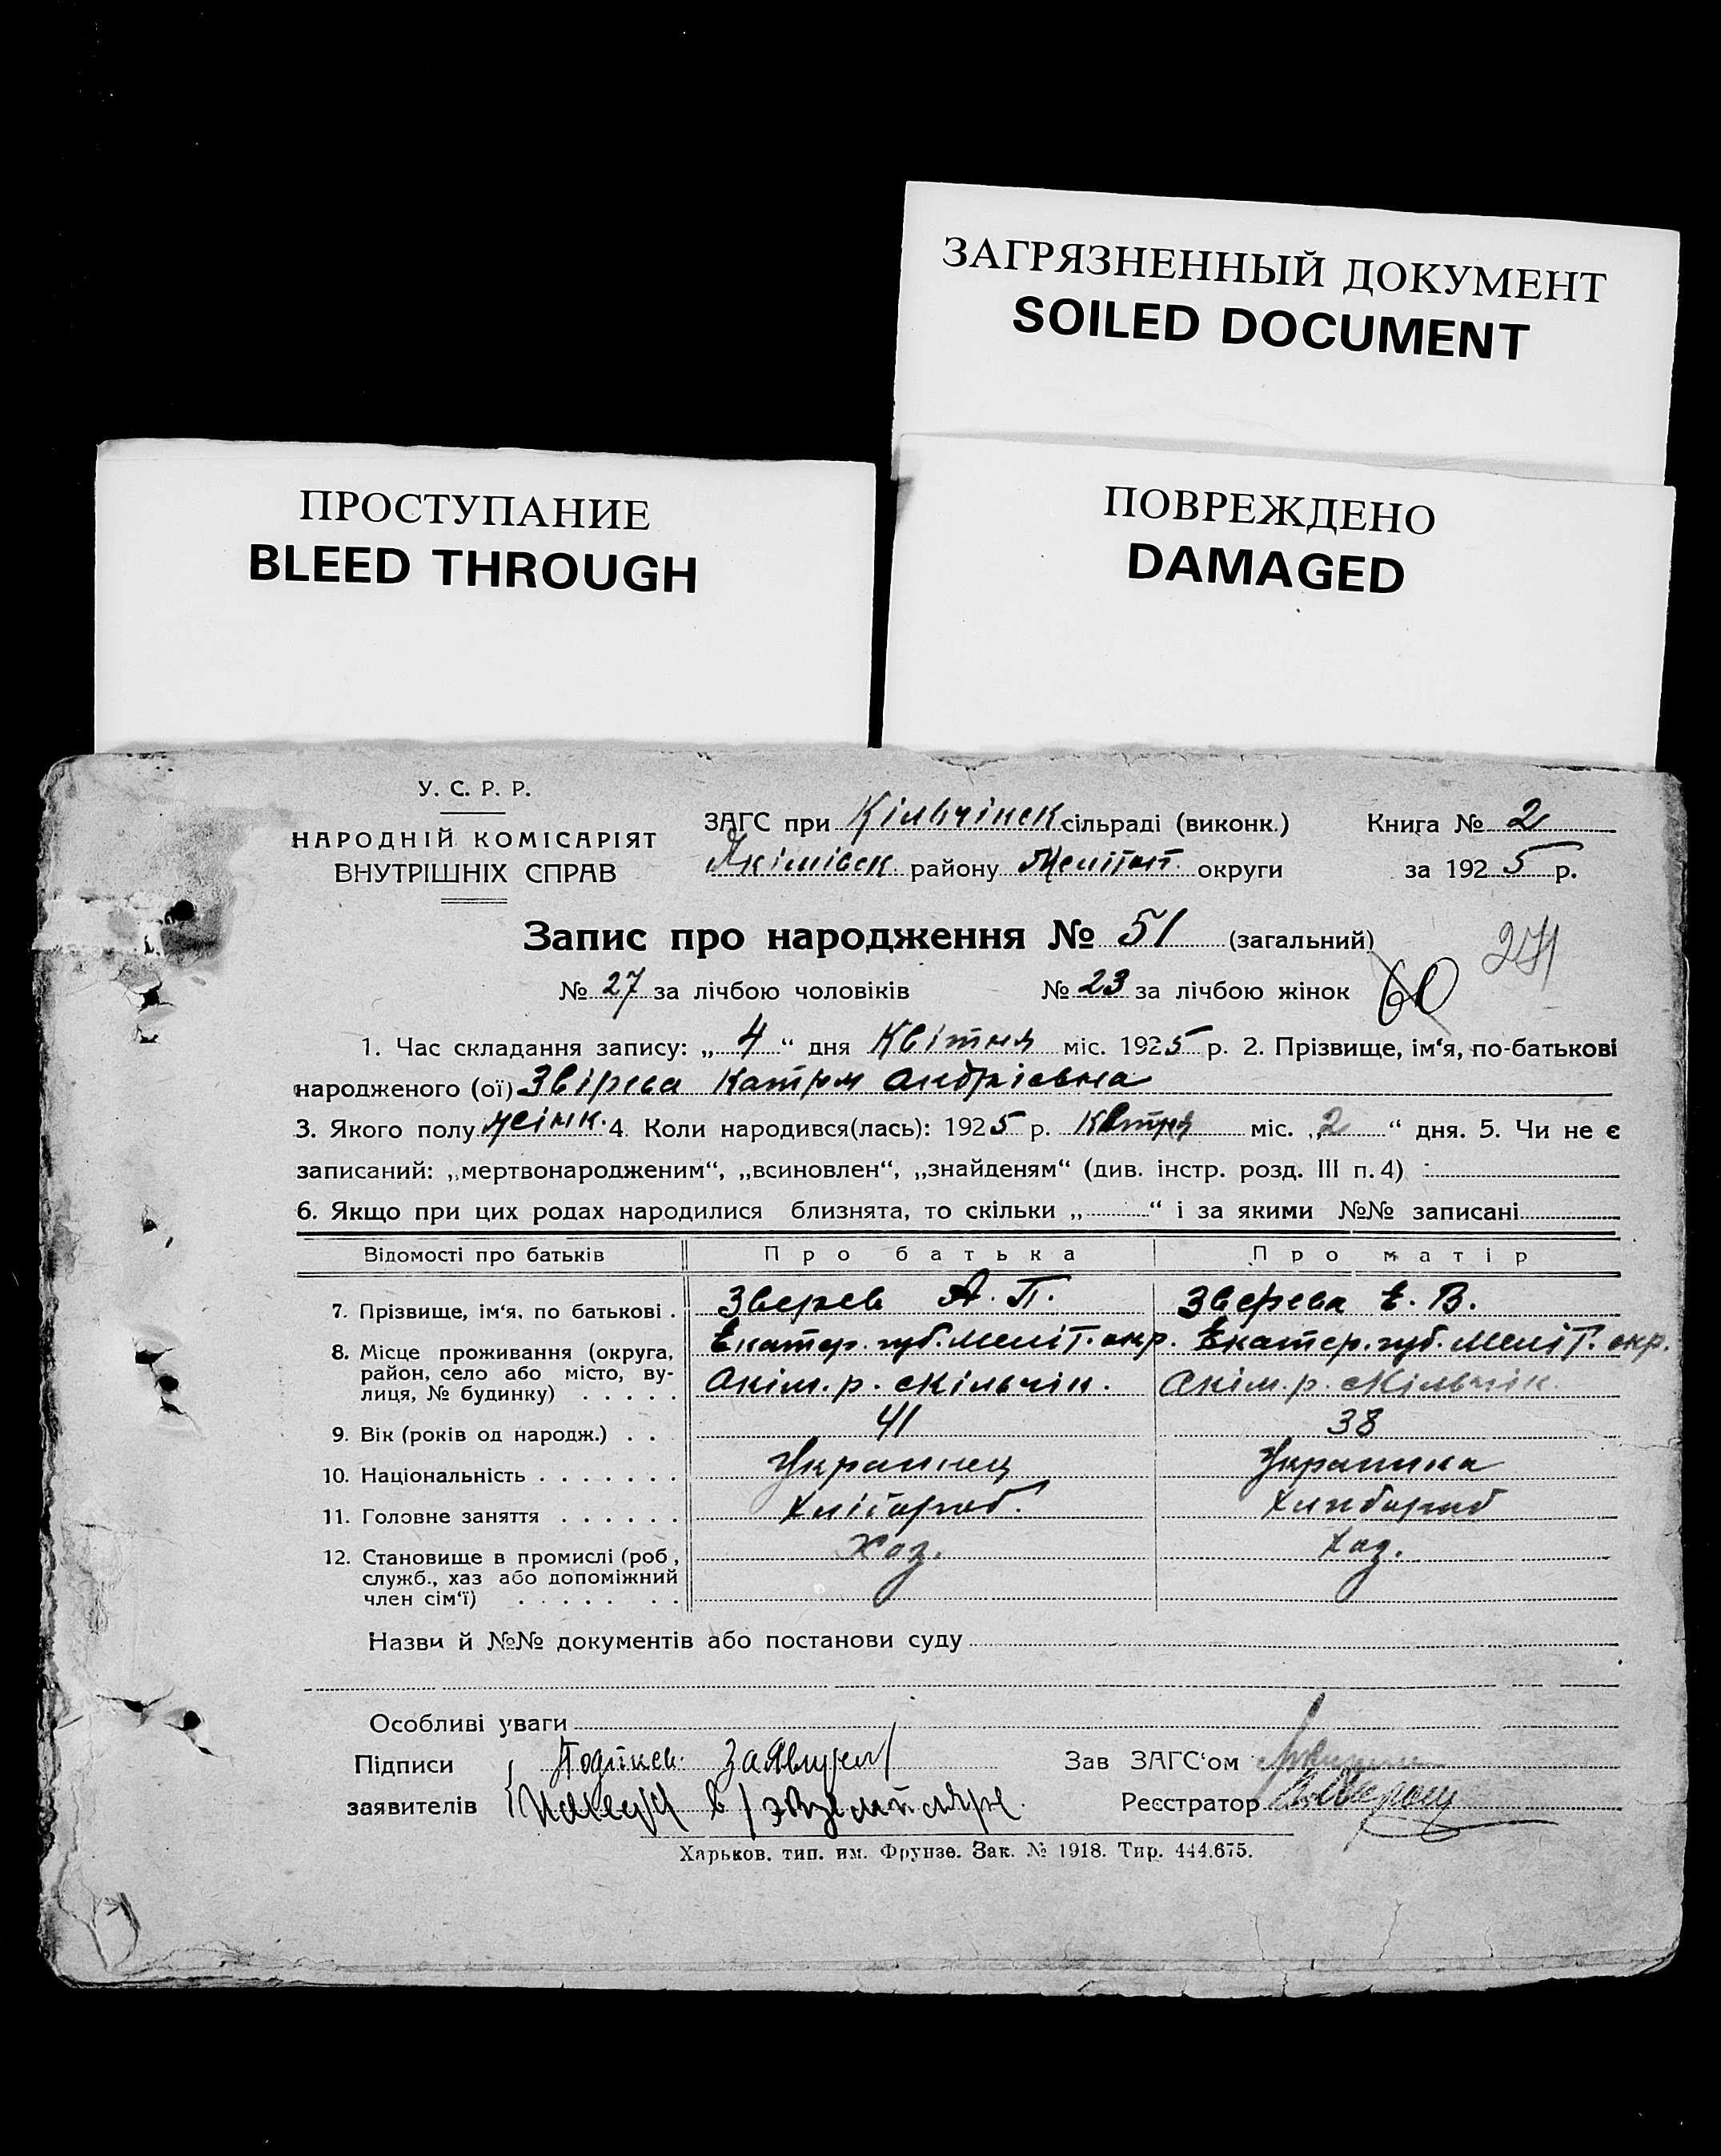 ЗАГРЯЗНЕННЫЙ ДОКУМЕНТ
SOILED DOCUMENT
ПРОСТУПАНИЕ
BLEED THROUGH
ПОВРЕЖДЕНО
DAMAGED
У. С. Р. Р.
НАРОДНІЙ КОМІСАРІЯТ
ВНУТРІШНІХ СПРАВ
ЗАГС при Кільчінск сільраді (виконк.) Книга № 2
Якімівск району Меліт округи за 1925 р.
Запис про народження № 51 (загальний)
271
№ 27 за лічбою чоловіків № 23 за лічбою жінок 60
1. Час складання запису: „4“ дня Квітня міс. 1925 р. 2. Прізвище, ім‘я, по-батькові
народженого (ої) Звірева Катря Андріевна
3. Якого полу жінк. 4. Коли народився(лась): 1925 р. Квітня міс. „2“ дня. 5. Чи не є
записаний: „мертвонародженим“, „всиновлен“, „знайденям“ (див. інстр. розд. III п. 4)
6. Якщо при цих родах народилися близнята, то скільки „ “ і за якими №№ записані
Відомості про батьків Про батька Про матір
7. Прізвище, ім‘я, по батькові . Зверев А. П. Зверева Е. В.
8. Місце проживання (округа, Екатер. губ. Меліт. окр. Екатер. губ. Меліт. окр.
район, село або місто, ву-
лиця, № будинку) . . . . . Акім. р. с Кільчік. Акім. р. с Кільчік.
9. Вік (років од народж.) . . . 41 38
10. Національність . . . . . . . Украинец Украинка
11. Головне заняття . . . . . . Хлібороб. Хлибороб
12. Становище в промислі (роб., Хаз. Хаз.
служб., хаз або допоміжний
член сім‘ї) . . . . . . .
Назви й №№ документів або постанови суду
Особливі уваги
Підписи Подписи Заявител Зав ЗАГС‘ом
заявителів в 1 экземпляре. Реєстратор
Харьков. тип. им. Фрунзе. Зак. № 1918. Тир. 444.675.